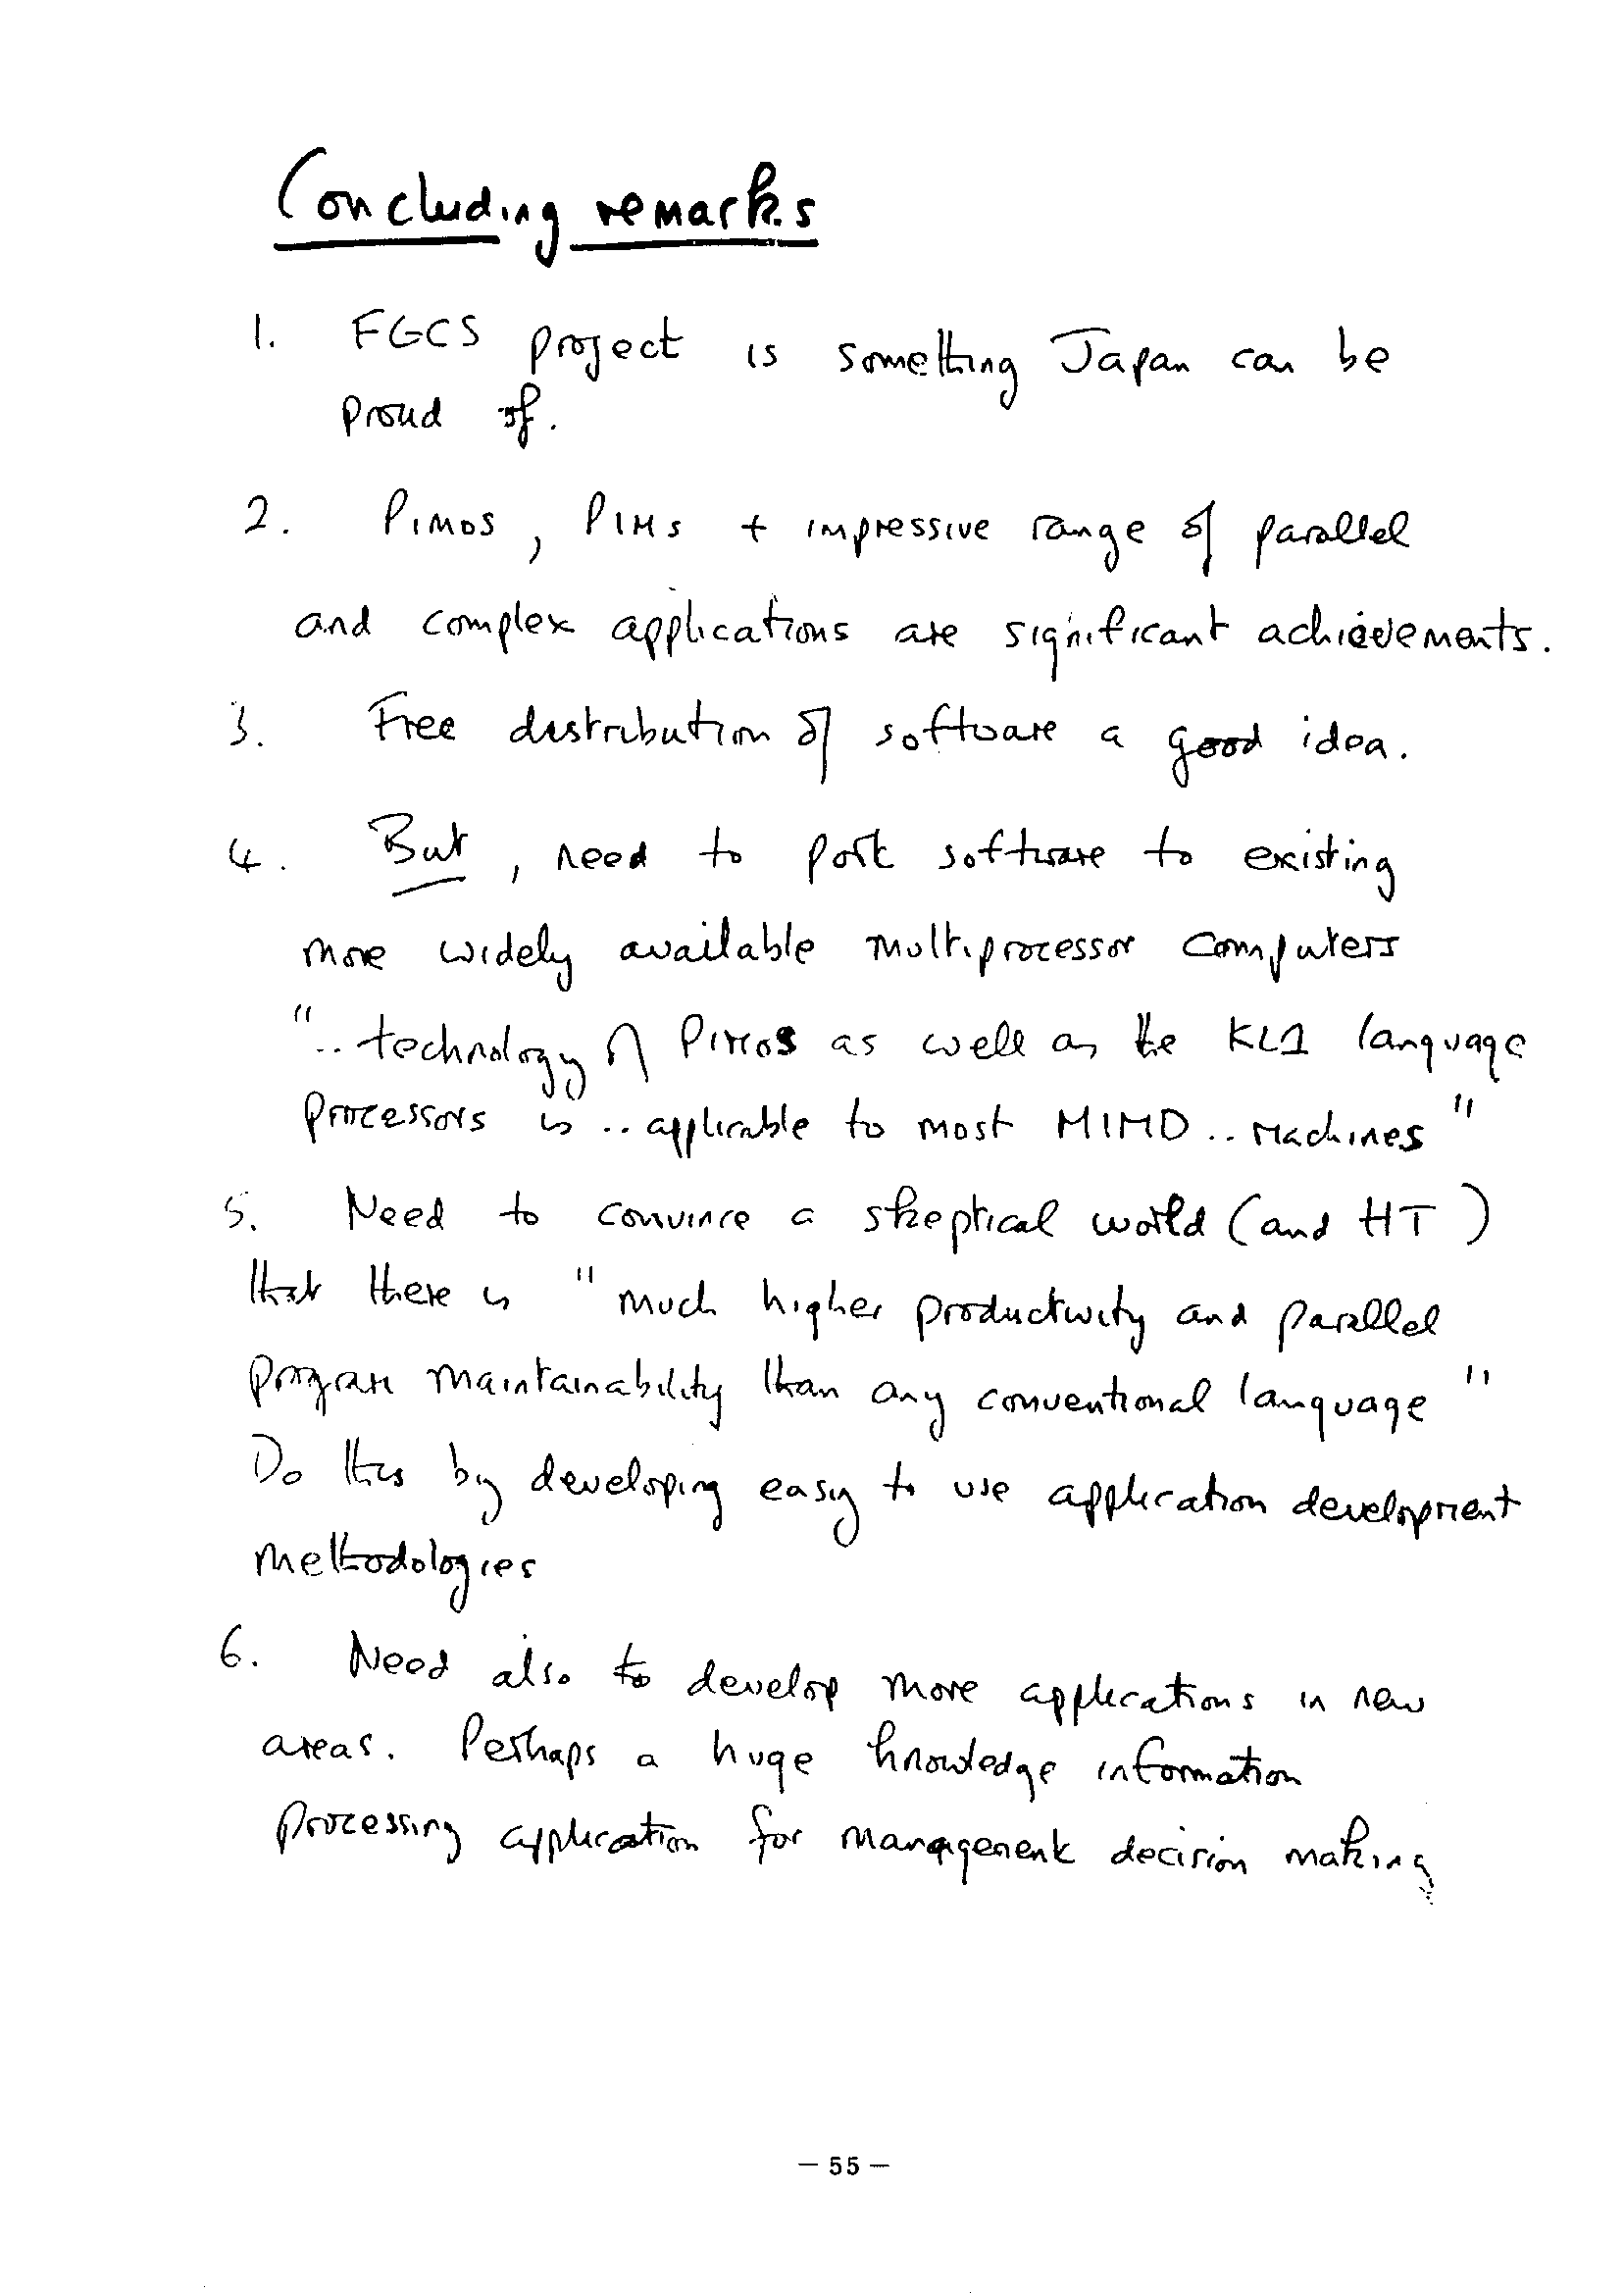 Concluding remarks
1. FGCS project is something Japan can be
proud of.
2. PIMOS, PIMs + impressive range of parallel
and complex applications are significant achievements.
3. Free distribution of software a good idea.
4. But, need to port software to existing
more widely available multiprocessor computers
"..technology of PIMOS as well as the KL1 language
processors is .. applicable to most MIMD .. machines"
5. Need to convince a skeptical world (and HT)
that there is "much higher productivity and parallel
program maintainability than any conventional language"
Do this by developing easy to use application development
methodologies
6. Need also to develop more applications in new
areas. Perhaps a huge knowledge information
processing application for management decision making
— 55 —